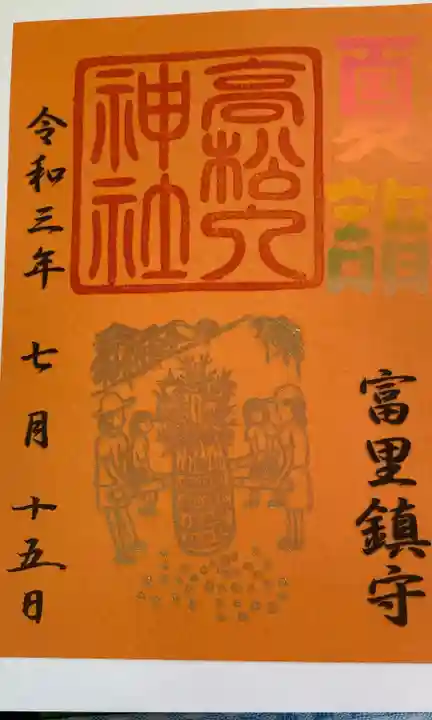 夏詣
富里鎮守
高松六
神社
令和三年 七月 十五日